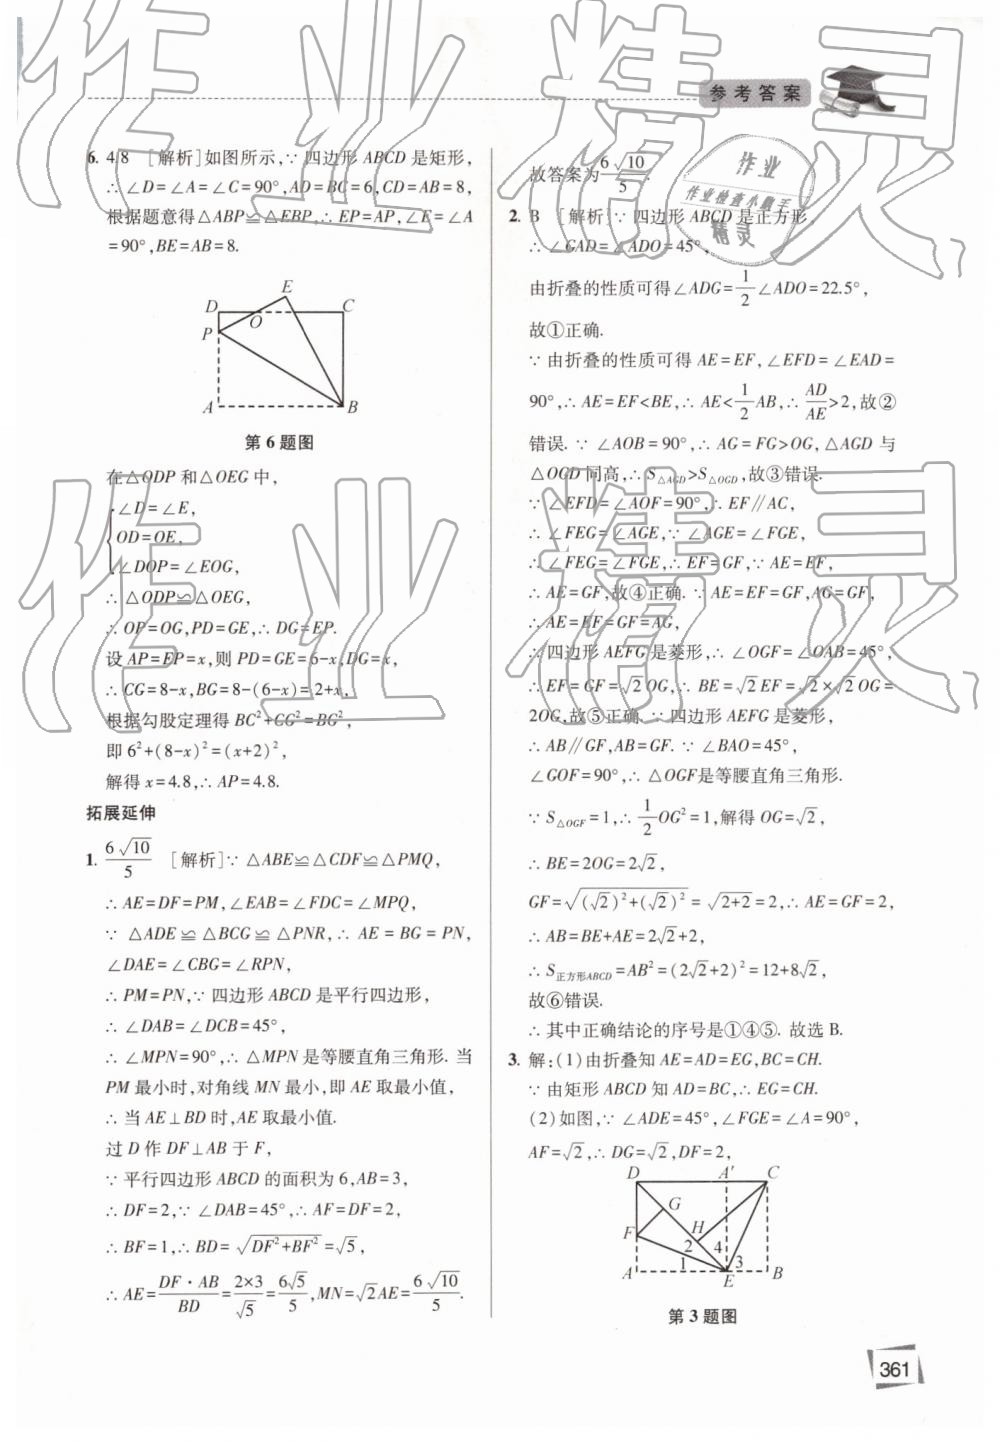 参考答案
6. 4.8 [解析]如图所示,∵ 四边形 ABCD 是矩形,
∴ ∠D=∠A=∠C=90°,AD=BC=6,CD=AB=8,
根据题意得△ABP≌△EBP,∴ EP=AP,∠E=∠A
=90°,BE=AB=8.
E
D
O
C
P
A
B
第 6 题图
在△ODP 和△OEG 中,
∠D=∠E,
OD=OE,
∠DOP=∠EOG,
∴ △ODP≌△OEG,
∴ OP=OG,PD=GE,∴ DG=EP.
设 AP=EP=x,则 PD=GE=6-x,DG=x,
∴ CG=8-x,BG=8-(6-x)=2+x,
根据勾股定理得 BC²+CG²=BG²,
即 6²+(8-x)²=(x+2)²,
解得 x=4.8,∴ AP=4.8.
拓展延伸
1. 6√10/5 [解析]∵ △ABE≌△CDF≌△PMQ,
∴ AE=DF=PM,∠EAB=∠FDC=∠MPQ,
∵ △ADE≌△BCG≌△PNR,∴ AE=BG=PN,
∠DAE=∠CBG=∠RPN,
∴ PM=PN,∵ 四边形 ABCD 是平行四边形,
∴ ∠DAB=∠DCB=45°,
∴ ∠MPN=90°,∴ △MPN 是等腰直角三角形. 当
PM 最小时,对角线 MN 最小,即 AE 取最小值,
∴ 当 AE⊥BD 时,AE 取最小值.
过 D 作 DF⊥AB 于 F,
∵ 平行四边形 ABCD 的面积为 6,AB=3,
∴ DF=2,∵ ∠DAB=45°,∴ AF=DF=2,
∴ BF=1,∴ BD=√(DF²+BF²)=√5,
∴ AE=DF·AB/BD=2×3/√5=6√5/5,MN=√2AE=6√10/5.
故答案为6√10/5.
2. B [解析]∵ 四边形 ABCD 是正方形,
∴ ∠GAD=∠ADO=45°,
由折叠的性质可得∠ADG=1/2∠ADO=22.5°,
故①正确.
∵ 由折叠的性质可得 AE=EF,∠EFD=∠EAD=
90°,∴ AE=EF<BE,∴ AE<1/2AB,∴ AD/AE>2,故②
错误. ∵ ∠AOB=90°,∴ AG=FG>OG,△AGD 与
△OGD 同高,∴ S△AGD>S△OGD,故③错误.
∵ ∠EFD=∠AOF=90°,∴ EF∥AC,
∴ ∠FEG=∠AGE,∵ ∠AGE=∠FGE,
∴ ∠FEG=∠FGE,∴ EF=GF,∵ AE=EF,
∴ AE=GF,故④正确. ∵ AE=EF=GF,AG=GF,
∴ AE=EF=GF=AG,
∴ 四边形 AEFG 是菱形,∴ ∠OGF=∠OAB=45°,
∴ EF=GF=√2OG,∴ BE=√2EF=√2×√2OG=
2OG,故⑤正确. ∵ 四边形 AEFG 是菱形,
∴ AB∥GF,AB=GF. ∵ ∠BAO=45°,
∠GOF=90°,∴ △OGF是等腰直角三角形.
∵ S△OGF=1,∴ 1/2OG²=1,解得 OG=√2,
∴ BE=2OG=2√2,
GF=√((√2)²+(√2)²)=√(2+2)=2,∴ AE=GF=2,
∴ AB=BE+AE=2√2+2,
∴ S正方形ABCD=AB²=(2√2+2)²=12+8√2,
故⑥错误.
∴ 其中正确结论的序号是①④⑤. 故选 B.
3. 解:(1)由折叠知 AE=AD=EG,BC=CH.
∵ 由矩形 ABCD 知 AD=BC,∴ EG=CH.
(2)如图,∵ ∠ADE=45°,∠FGE=∠A=90°,
AF=√2,∴ DG=√2,DF=2,
D
A′
C
G
F
H
2
4
1
3
A
E
B
第 3 题图
361
作业精灵
作业精灵
作业
作业检查小助手
精灵